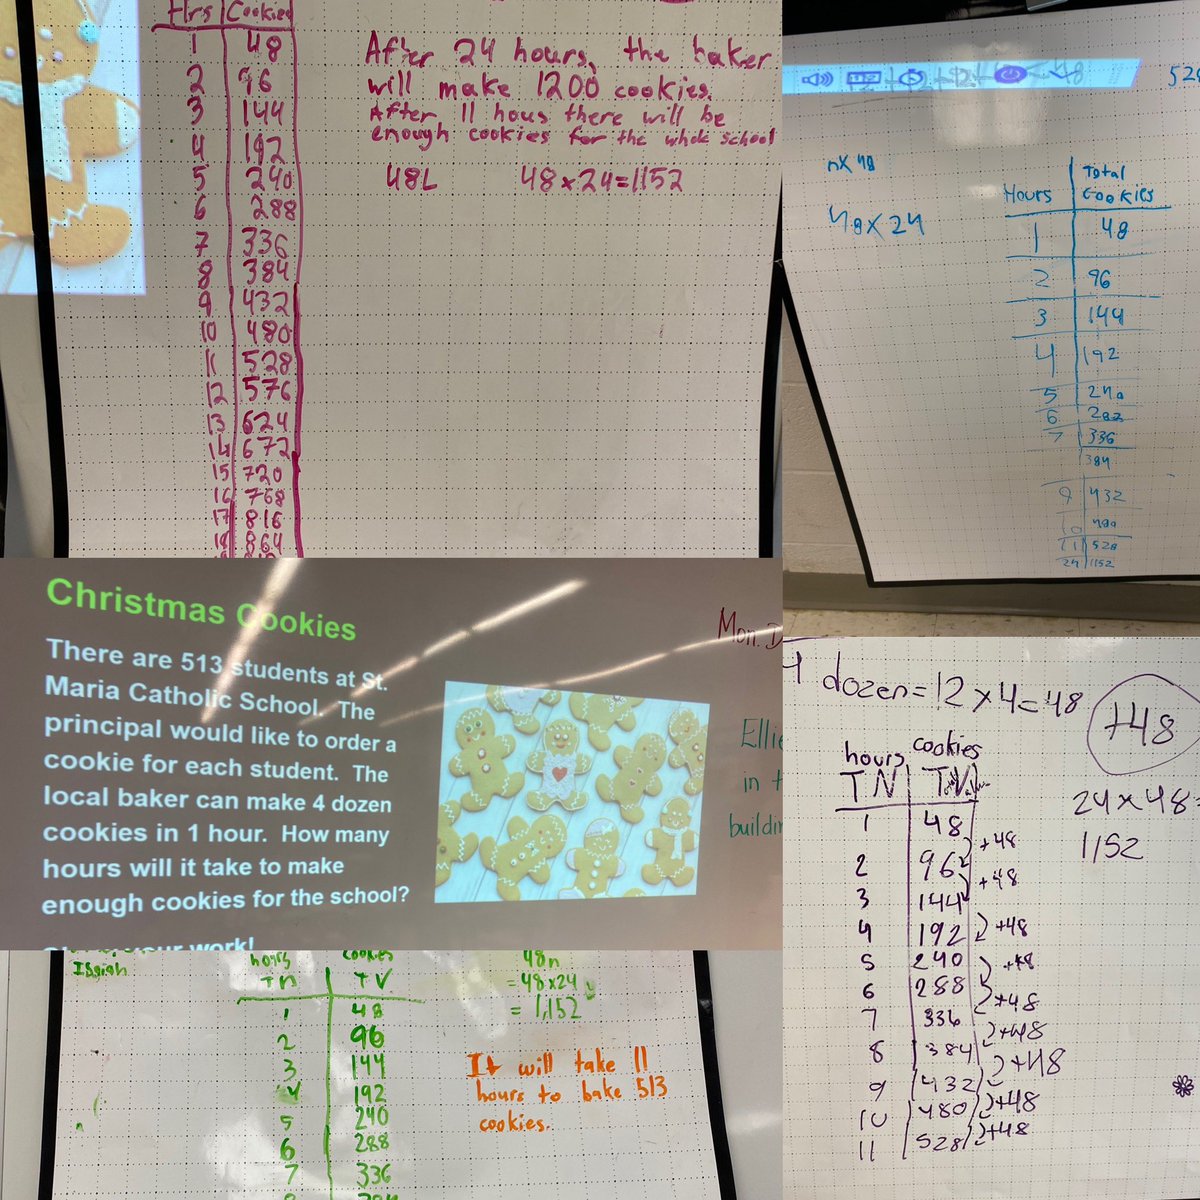 Hrs Cookies
1 48
2 96
3 144
4 192
5 240
6 288
7 336
8 384
9 432
10 480
11 528
12 576
13 624
14 672
15 720
16 768
17 816
18 864
After 24 hours, the baker
will make 1200 cookies.
After 11 hous there will be
enough cookies for the whole school
48L 48×24=1152
528
nX 48
48X24
Total
Hours Cookies
1 48
2 96
3 144
4 192
5 240
6 282
7 336
384
9 432
10 480
11 528
24 1152
Christmas Cookies
There are 513 students at St.
Maria Catholic School. The
principal would like to order a
cookie for each student. The
local baker can make 4 dozen
cookies in 1 hour. How many
hours will it take to make
enough cookies for the school?
your work!
Mon. D
Ellie
in t
buildin
4 dozen=12×4=48
+48
hours cookies
TN TV
1 48
2 96
3 144
4 192
5 240
6 288
7 336
8 384
9 432
10 480
11 528
+48
+48
+48
+48
+48
+48
+48
+48
+48
24×48=
1152
Isaiah
hours cookies
Tn TV
1 48
2 96
3 144
4 192
5 240
6 288
7 336
48n
=48×24
= 1,152
It will take 11
hours to bake 513
cookies.